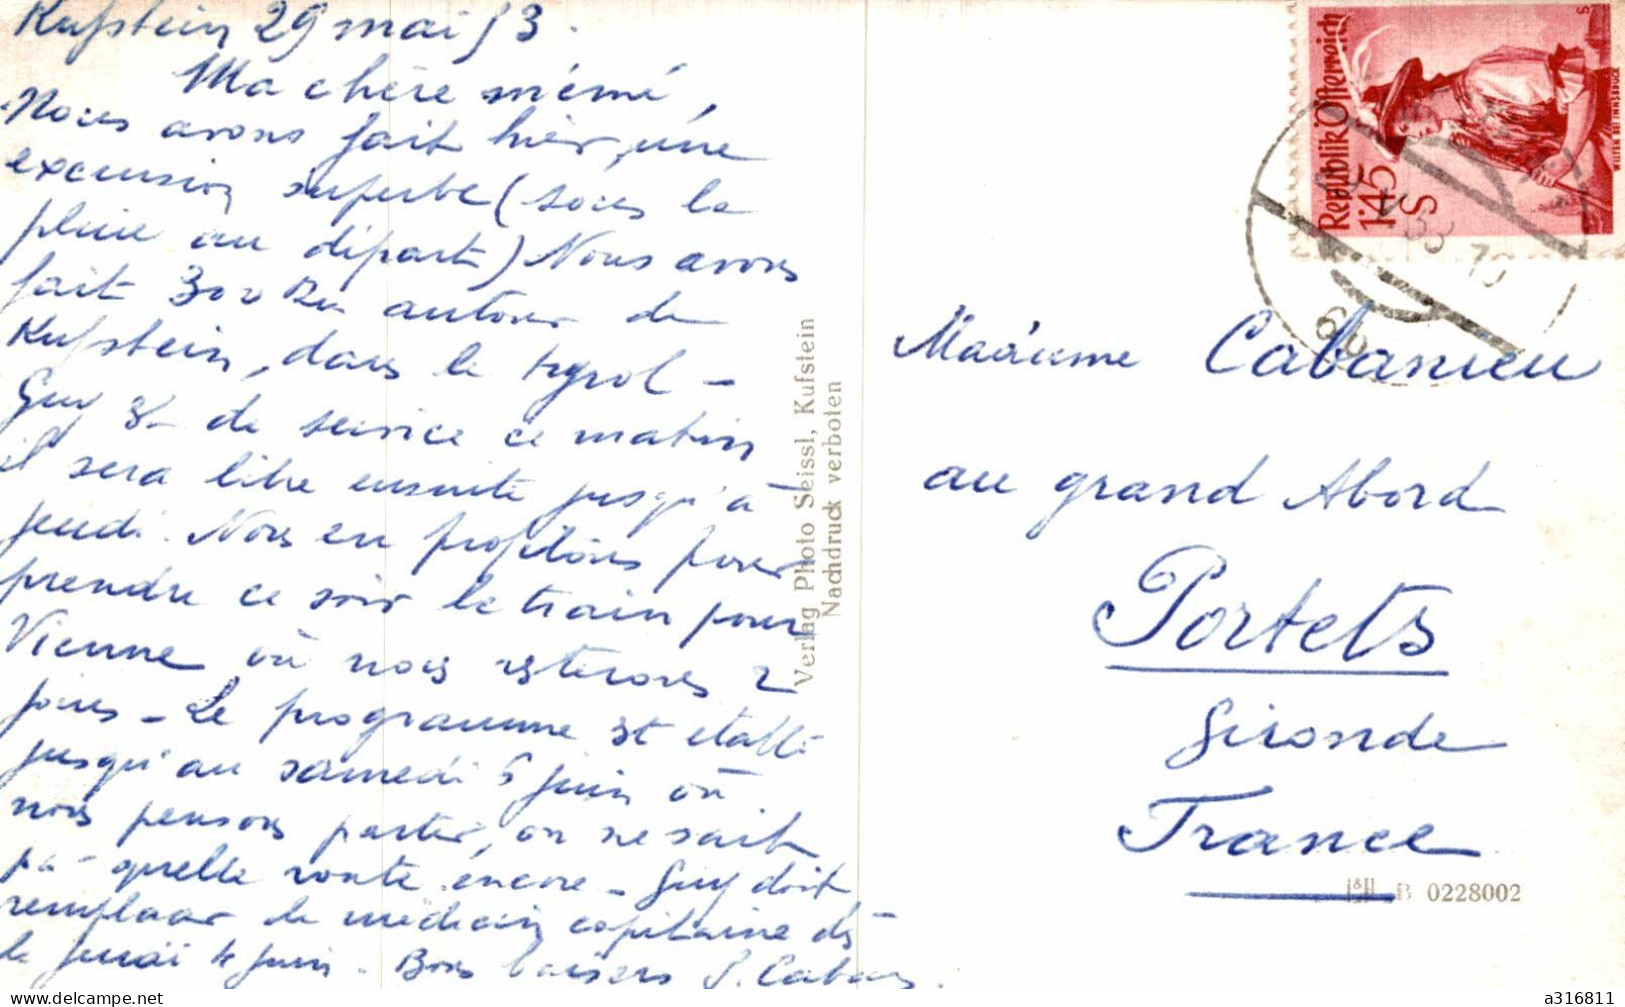 Kufstein 29 mai 53.
Ma chère mémé,
Nous avons fait hier, une
excursion superbe (sous la
pluie au départ) Nous avons
fait 300 Km autour de
Kufstein, dans le tyrol -
Guy est de service ce matin
il sera libre ensuite jusqu'à
jeudi. Nous en profitons pour
prendre ce soir le train pour
Vienne où nous resterons 2
jours - Le programme est établi
jusqu'au samedi 6 juin où
nous pensons partir, on ne sait
par quelle route encore - Guy doit
remplacer le médecin capitaine dès
le jeudi 4 juin. Bons baisers
Verlag Photo Seissl, Kufstein
Nachdruck verboten
Republik Österreich
1'45
S
WILTEN BEI INNSBRUCK
Madame Cabanieu
au grand Abord
Portets
Gironde
France
B 0228002
www.delcampe.net
a316811